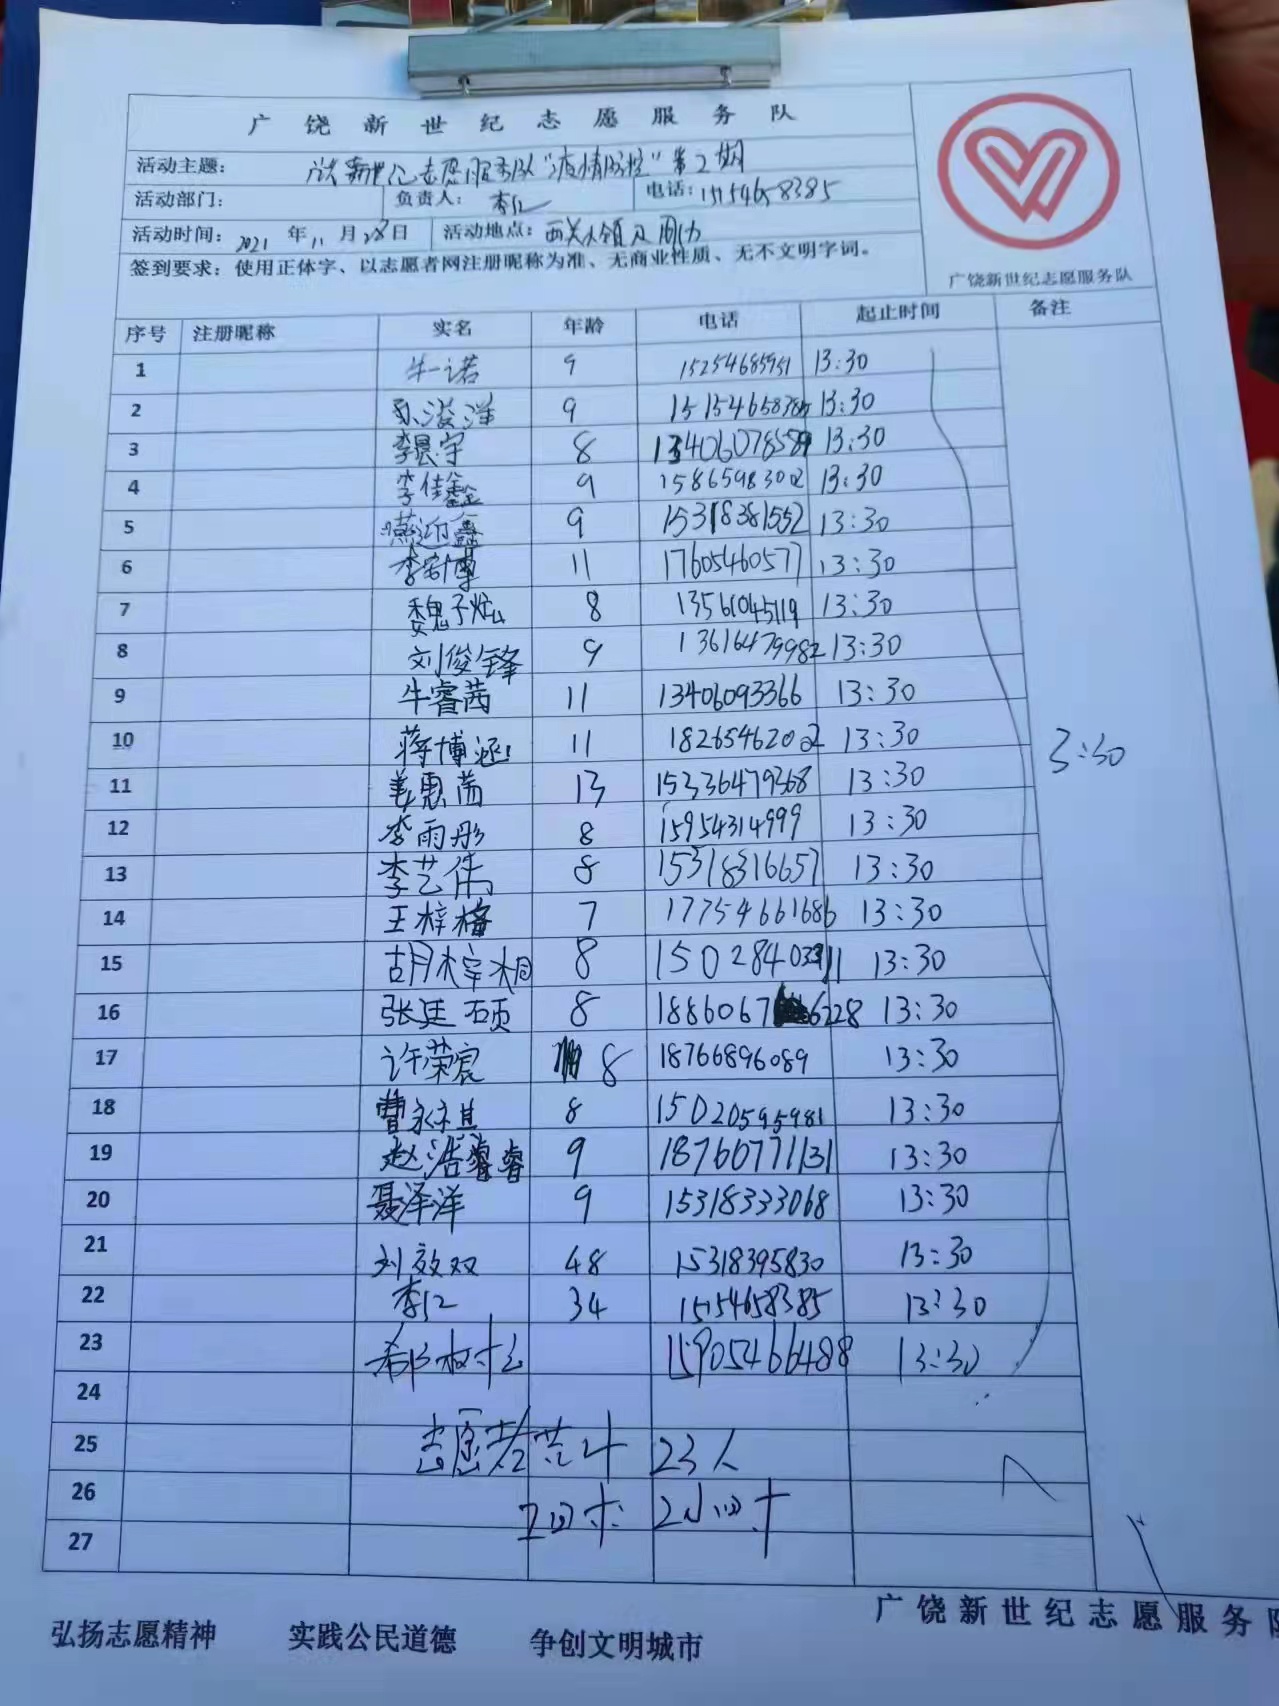 广饶新世纪志愿服务队
活动主题： 广饶新世纪志愿服务队"疫情防控"第2期
活动部门： 负责人： 李红 电话：15154658385
活动时间：2021年11月28日 活动地点：西关大领及周边
签到要求：使用正体字、以志愿者网注册昵称为准、无商业性质、无不文明字词。
广饶新世纪志愿服务队
序号 注册昵称 实名 年龄 电话 起止时间 备注
1 牛一诺 9 15254685951 13:30
2 9 13:30
3 李晨宇 8 13:30
4 李佳鑫 9 15865983002 13:30
5 迎鑫 9 15318381552 13:30
6 11 17605460577 13:30
7 魏子 8 13561045119 13:30
8 刘俊锋 9 13616479982 13:30
9 牛睿茜 11 13406093366 13:30
10 蒋博涵 11 18265462002 13:30
3:30
11 姜惠茜 13 15336479368 13:30
12 李雨彤 8 15954314999 13:30
13 李艺伟 8 15318316657 13:30
14 王梓格 7 17754661686 13:30
15 胡梓桐 8 13:30
16 张廷硕 8 13:30
17 许荣宸 8 18766896089 13:30
18 曹永祺 8 15020595981 13:30
19 赵浩睿 9 18760771131 13:30
20 聂泽洋 9 15318333068 13:30
21 刘效双 48 15318395830 13:30
22 李红 34 15154658385 13:30
23 15905466488 13:30
24
25 志愿者共计 23人
26 工时 2小时
27
广饶新世纪志愿服务队
弘扬志愿精神 实践公民道德 争创文明城市